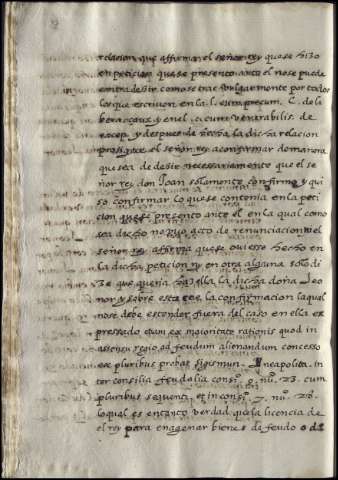 relacion que affirma el señor rey que se hizo
en peticion que se presento ante el no se puede
contradezir como se trae vulgarmente por todos
los que escriven en la l. cum precum. C. de li
bera causa y en el c. cum venerabilis. de
except. y despues de hecha la dicha relacion
prosigue el señor rey a confirmar de manera
que sea de dezir necessariamente que el se
ñor rey don Joan solamente confirmo y qui
so confirmar lo que se contenia en la peti
cion que se presento ante el en la qual como
sea dicho no huvo acto de renunciacion ni el
señor rey affirma que se oviesse hecho en
la dicha peticion ny en otra alguna solo di
ze que queria ella la dicha doña Leo
nor y sobre esta cae la confirmacion la qual
no se debe estender fuera del caso en ella ex
pressado etiam ex maioritate rationis quod in
assensu regio ad feudum alienandum concesso
ex pluribus probat Sigismun. Neapolita. in
ter consilia feudalia consi. 9. nu. 23. cum
pluribus sequent. et in consi. 7. nu. 28.
lo qual es en tanto verdad que la licencia de
el rey para enagenar bienes de feudo o de